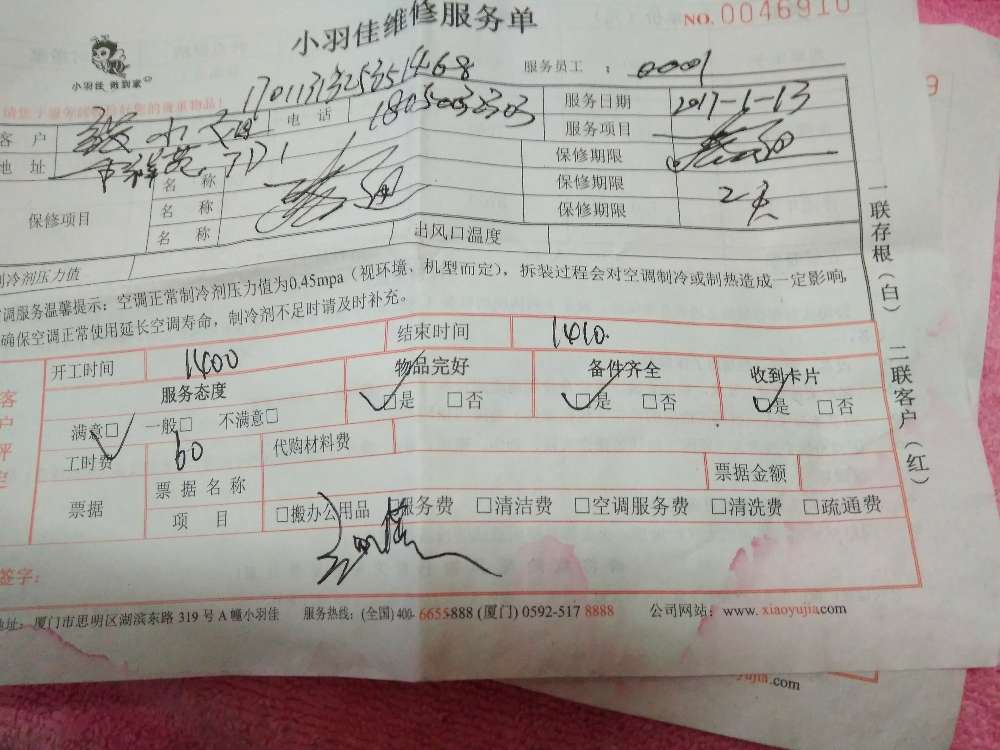 小羽佳维修服务单
NO. 0046910
小羽佳 做到家
1701131325351468
服务员工 : 0001
户 电话 18050033303 服务日期 2017-1-13
服务项目
地址 名称 保修期限
保修项目 名称 保修期限
名称 保修期限 2天
出风口温度
冷剂压力值
调服务温馨提示:空调正常制冷剂压力值为0.45mpa(视环境、机型而定),拆装过程会对空调制冷或制热造成一定影响,
确保空调正常使用延长空调寿命,制冷剂不足时请及时补充。
一联存根(白) 二联客户(红)
开工时间 1400 结束时间 1410
服务态度 物品完好 备件齐全 收到卡片
满意□ 一般□ 不满意□ □是 □否 □是 □否 □是 □否
工时费 60 代购材料费
票据 票据名称 票据金额
项目 □搬办公用品 □服务费 □清洁费 □空调服务费 □清洗费 □疏通费
签字:
地址:厦门市思明区湖滨东路 319 号 A 幢小羽佳 服务热线:(全国)400-6655888 (厦门) 0592-517 8888 公司网站:www.xiaoyujia.com